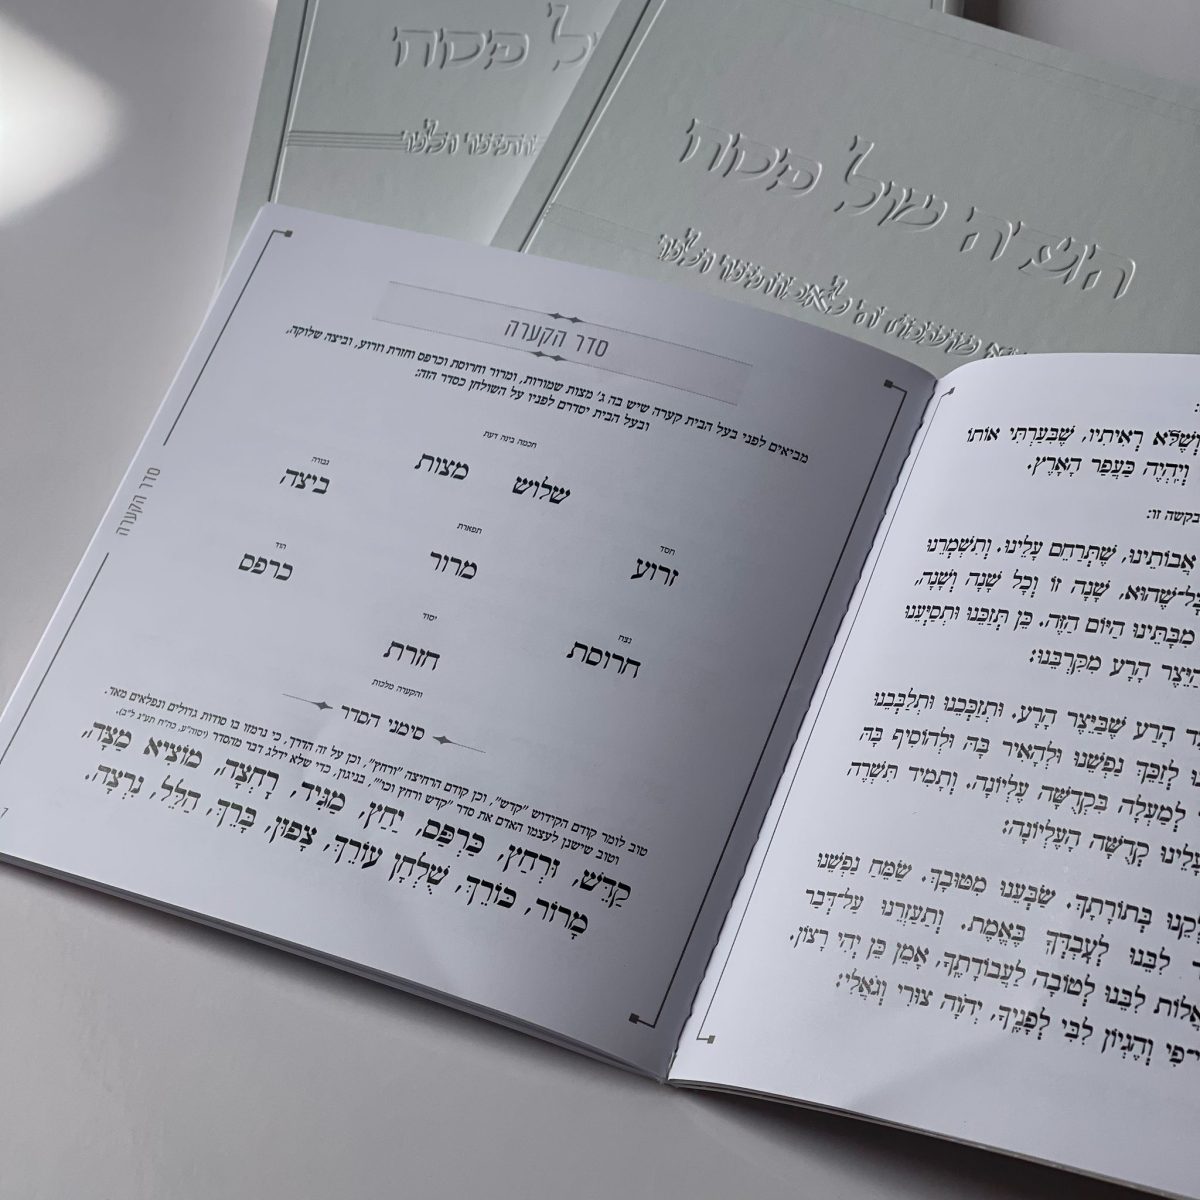 ל פסח
הגדה של פסח
סדר הקערה
מביאים לפני בעל הבית קערה שיש בה ג' מצות שמורות, ומרור וחרוסת וכרפס וחזרת וזרוע, וביצה שלוקה,
ובעל הבית יסדרם לפניו על השולחן כסדר הזה:
חכמה בינה דעת
שלוש מצות
גבורה
ביצה
חסד
זרוע
תפארת
מרור
הוד
כרפס
נצח
חרוסת
יסוד
חזרת
והקערה מלכות
סימני הסדר
טוב לומר קודם הקידוש "קדש", וכן קודם הרחיצה "ורחץ", וכן על זה הדרך, כי נרמזו בו סודות גדולים ונפלאים מאד.
וטוב שישנן לעצמו האדם את סדר "קדש ורחץ וכו'", בניגון, כדי שלא ידלג דבר מהסדר
קַדֵּשׁ, וּרְחַץ, כַּרְפַּס, יַחַץ, מַגִּיד, רָחְצָה, מוֹצִיא מַצָּה,
מָרוֹר, כּוֹרֵךְ, שֻׁלְחָן עוֹרֵךְ, צָפוּן, בָּרֵךְ, הַלֵּל, נִרְצָה.
סדר הקערה
7
וְשֶׁלֹּא רְאִיתִיו, שֶׁבִּעַרְתִּי אוֹתוֹ
וְיִהְיֶה כַּעֲפַר הָאָרֶץ.
בקשה זו:
אֲבוֹתֵינוּ, שֶׁתְּרַחֵם עָלֵינוּ. וְתִשְׁמְרֵנוּ
כָּל־שֶׁהוּא, שָׁנָה זוֹ וְכָל שָׁנָה וְשָׁנָה,
מִבָּתֵּינוּ הַיּוֹם הַזֶּה. כֵּן תְּזַכֵּנוּ וּתְסַיְּעֵנוּ
הַיֵּצֶר הָרָע מִקִּרְבֵּנוּ:
הָרַע שֶׁבַּיֵּצֶר הָרָע. וּתְזַכְּכֵנוּ וּתְלַבְּבֵנוּ
לְזַכֵּךְ נַפְשֵׁנוּ וּלְהָאִיר בָּהּ וּלְהוֹסִיף בָּהּ
לְמַעְלָה בִּקְדֻשָּׁה עֶלְיוֹנָה. וְתָמִיד תִּשְׁרֶה
עָלֵינוּ קְדֻשָּׁה הָעֶלְיוֹנָה:
בְּתוֹרָתֶךָ. שַׂבְּעֵנוּ מִטּוּבָךְ. שַׂמֵּחַ נַפְשֵׁנוּ
לִבֵּנוּ לְעָבְדְּךָ בֶּאֱמֶת. וְתַעַזְרֵנוּ עַל־דְּבַר
לִבֵּנוּ לְטוֹבָה לַעֲבוֹדָתֶךָ, אָמֵן כֵּן יְהִי רָצוֹן.
־פִי וְהֶגְיוֹן לִבִּי לְפָנֶיךָ, יְהֹוָה צוּרִי וְגֹאֲלִי: